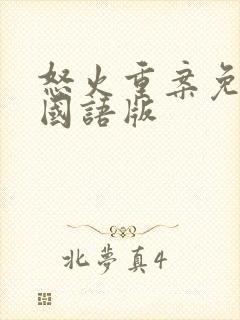 怒火重案免
國語版
北夢真4